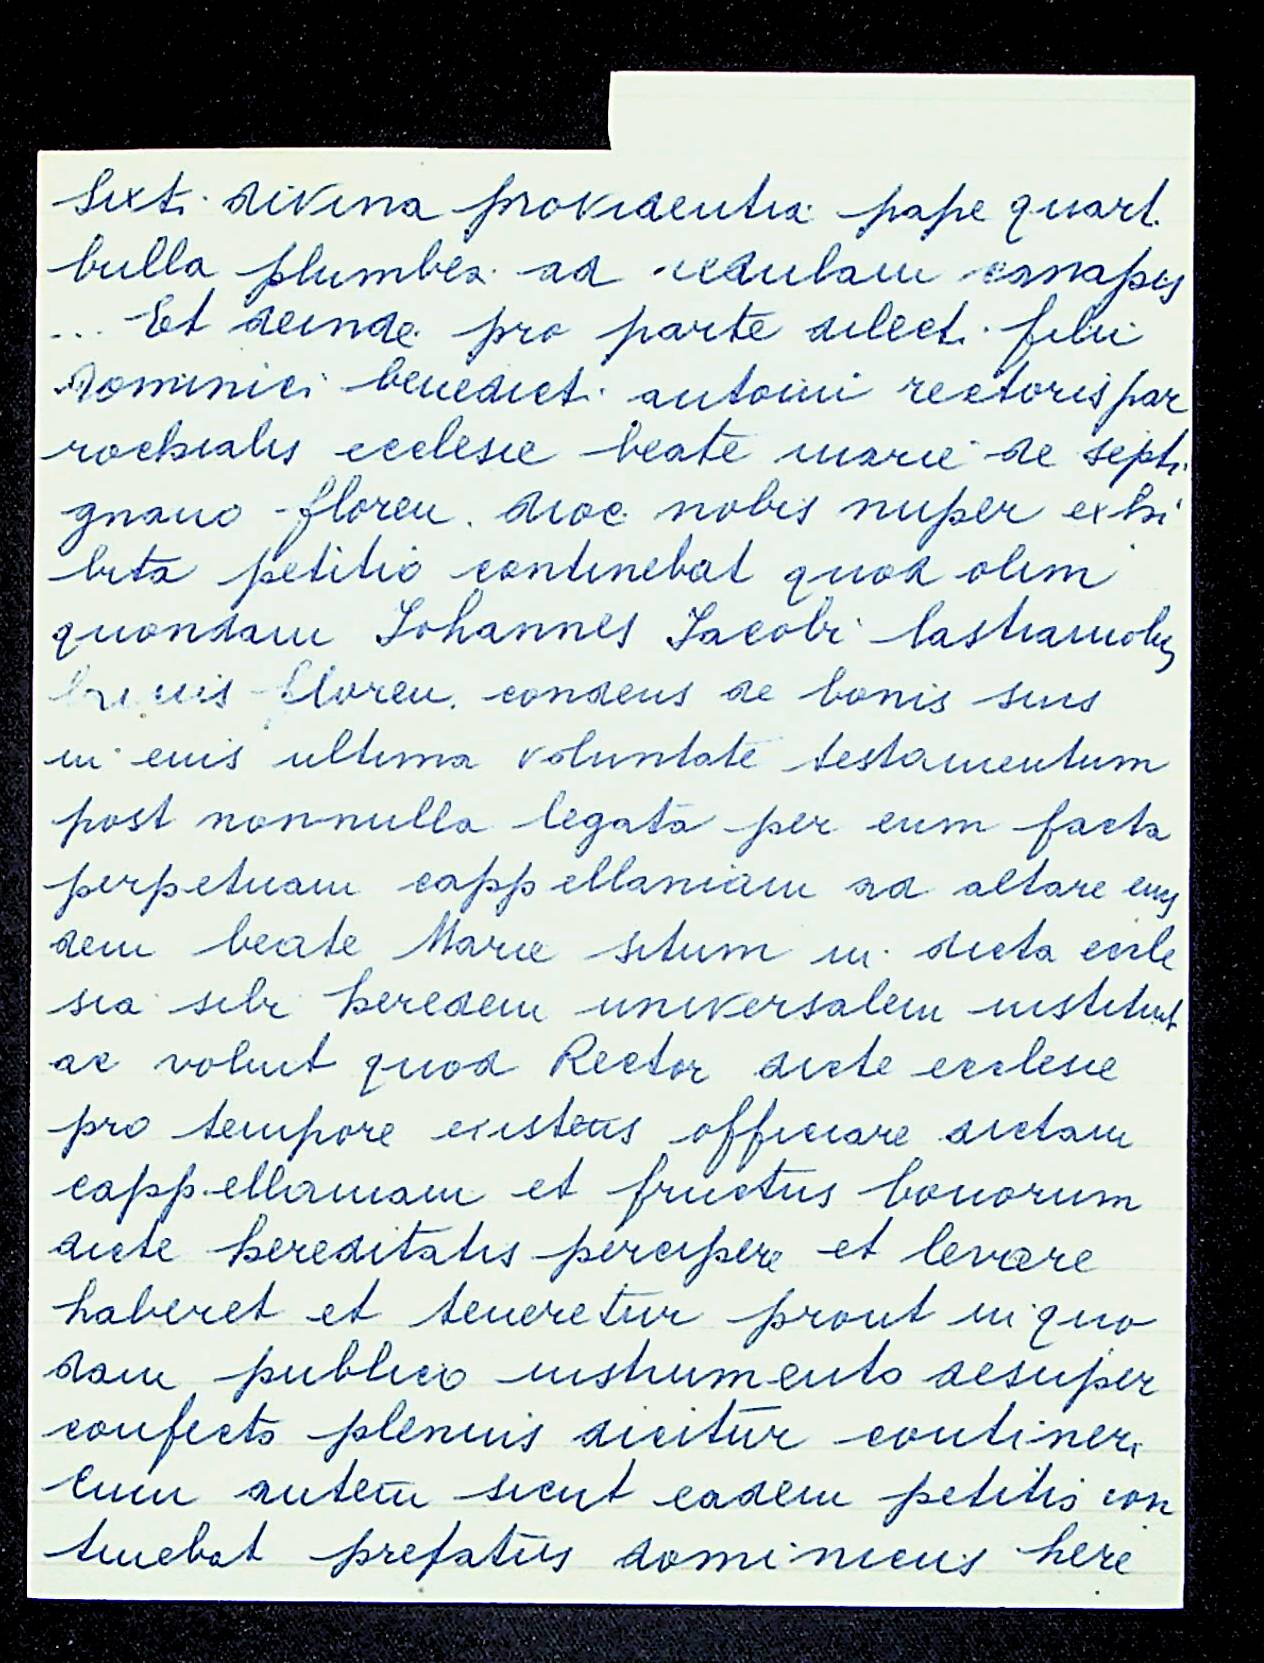 Sixti divina providentia pape quarti
bulla plumbea ad cedulam canapis
... Et deinde pro parte dilecti filii
Dominici benedicti antonii rectoris par
rochialis ecclesie beate marie de septi
gnano floren. dioc nobis nuper exhi
bita petitio continebat quod olim
quondam Johannes Jacobi lastramoli
floren. condens de bonis suis
in eius ultima voluntate testamentum
post nonnulla legata per eum facta
perpetuam cappellaniam ad altare eius
dem beate Marie situm in dicta eccle
sia sibi heredem universalem instituit
ac voluit quod Rector dicte ecclesie
pro tempore existens officiare dictam
cappellaniam et fructus bonorum
dicte hereditatis percipere et levare
haberet et teneretur prout in quo
dam publico instrumento desuper
confecto plenius dicitur contineri
Cum autem sicut eadem petitio con
tinebat prefatus dominicus here